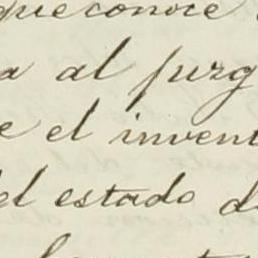 que conoce
a al juzg
e el invent
el estado d